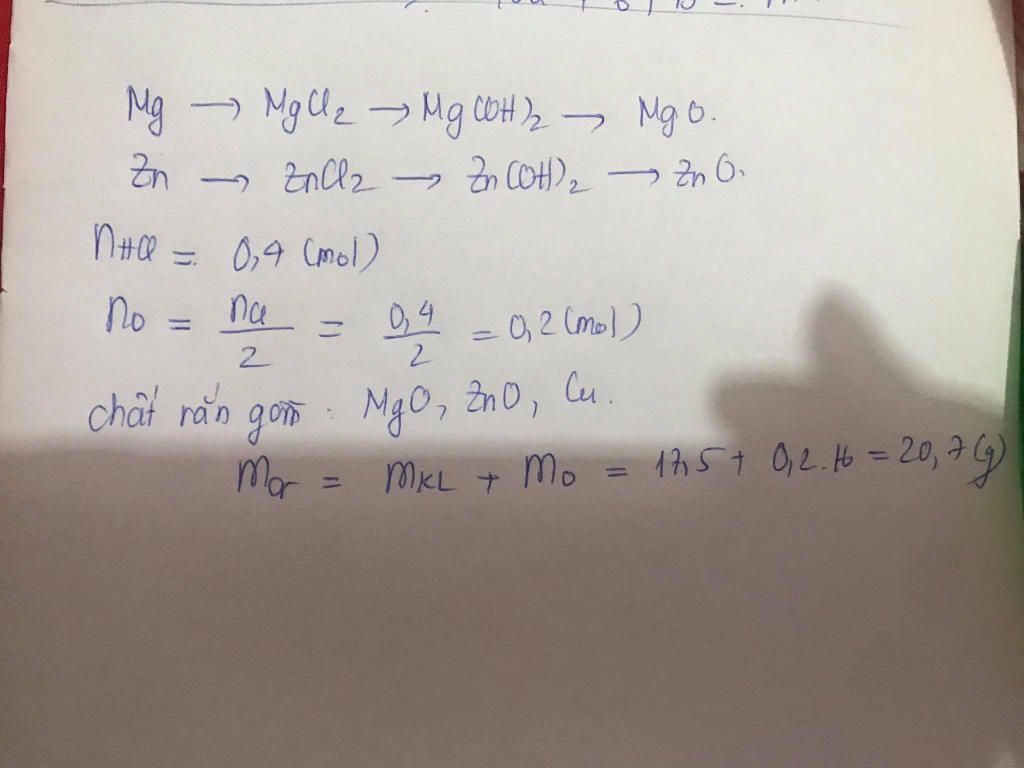 Mg → MgCl₂ → Mg(OH)₂ → MgO.
Zn → ZnCl₂ → Zn(OH)₂ → ZnO.
nHCl = 0,4 (mol)
nO = nCl / 2 = 0,4 / 2 = 0,2 (mol)
chất rắn gồm : MgO, ZnO, Cu.
mcr = mKL + mO = 17,5 + 0,2.16 = 20,7 (g)